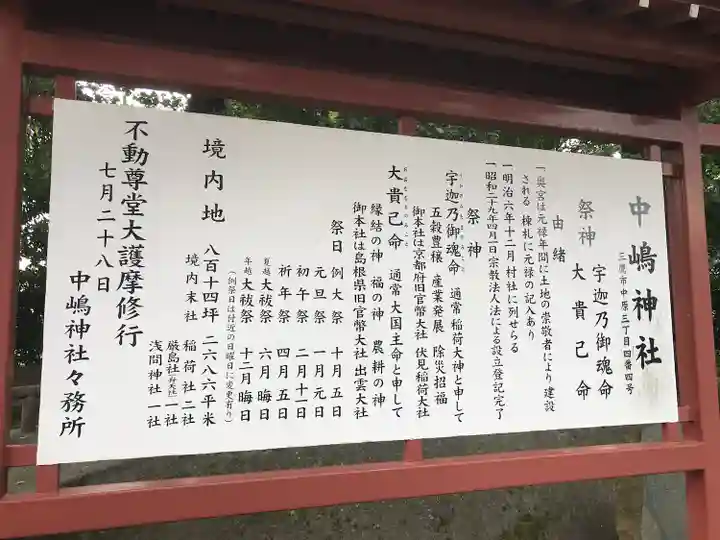 中嶋神社
三鷹市中原三丁目四番四号
祭神 宇迦乃御魂命
大貴己命
由緒
一 奥宮は元禄年間に土地の崇敬者により建設
される 棟札に元禄の記入あり
一 明治六年十二月 村社に列せらる
一 昭和二十九年四月一日宗教法人法による設立登記完了
祭神
宇迦乃御魂命 通常 稲荷大神と申して
五穀豊穣 産業発展 除災招福
御本社は京都府旧官幣大社 伏見稲荷大社
大貴己命 通常 大国主命と申して
縁結の神 福の神 農耕の神
御本社は島根県旧官幣大社 出雲大社
祭日 例大祭 十月五日
元旦祭 一月元日
初午祭 二月十一日
祈年祭 四月五日
夏越 大祓祭 六月晦日
年越 大祓祭 十二月晦日
(例祭日は付近の日曜日に変更有り)
境内地 八百十四坪 二六八六平米
境内末社 稲荷社 二社
厳島社(弁天社) 一社
浅間神社 一社
不動尊堂大護摩修行
七月二十八日
中嶋神社々務所